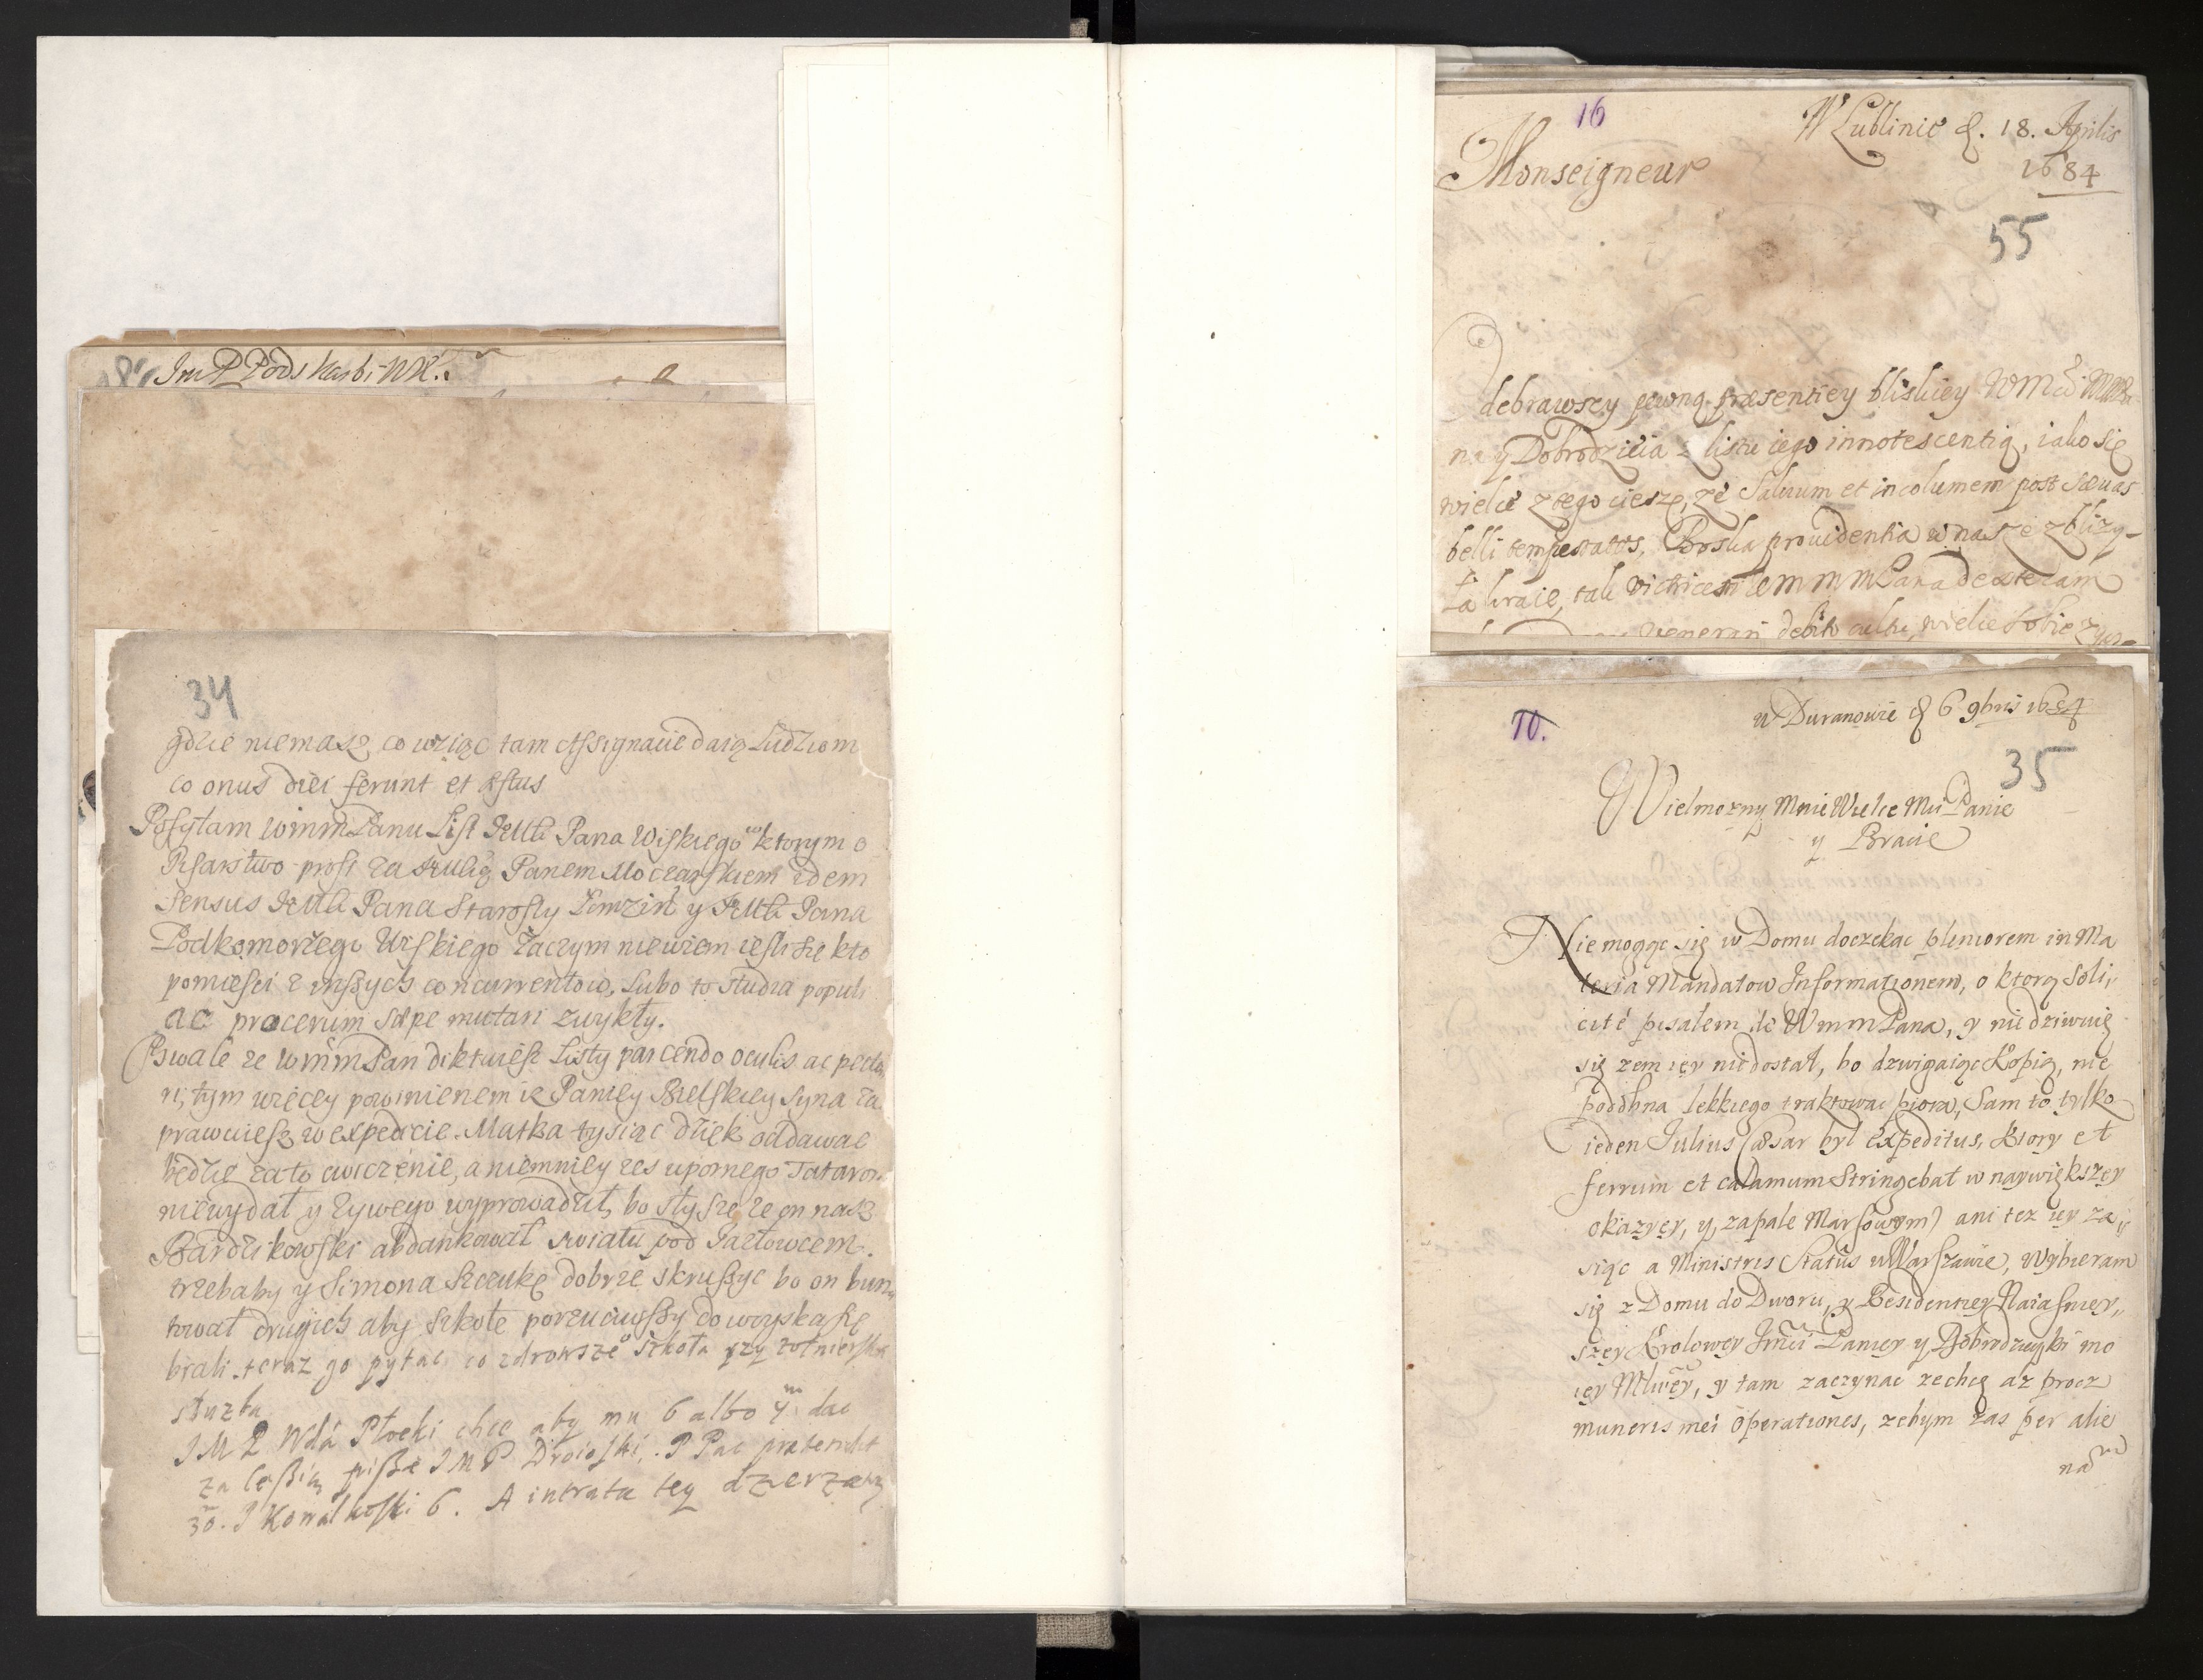 Im P Podskarbi WK.
34
gdzie niemasz co wziąc tam Assignacie daią Ludziom
co onus diei ferunt et Æstus
Posyłam wmmPanu List JeMći Pana Wiskiego w ktorym o
Pisarstwo prosi za JeMćią Panem Moczarskiem idem
sensus JeMći Pana Starosty Łomziń y JeMći Pana
Podkomorzego Wiskiego Zaczym niewiem iesli się kto
pomiesci z inszych concurrentow, Lubo to studia populi
ac procerum sæpe mutari zwykły.
Chwalę ze wmmPan diktuiesz Listy parcendo oculis ac pecto
ri, tym więcey powinienem ze Paniey Bielskiey Syna za
prawuiesz w expedicie. Matka tysiąc dziek oddawac
będzie za to cwiczenie, a niemniey zes upornego Tatarom
niewydał y zywego wyprowadził, bo słyszę ze on nasz
Bardzikowski abdankował swiatu pod Jazłowcem.
trzebaby y Simona Szczukę dobrze skruszyc bo on bun
tował drugich aby szkołę porzuciwszy do woyska się
brali. teraz go pytac co zdrowsze szkoła czy zołnierska
słuzba
J M P Wda Płocki chce aby mu 6 albo 4 dac
za lessią pisze J M P Droioski. P Pac prætendit
30. P Kowalkoski 6. A intrata tey dzerzawy
16
W Lublinie d. 18. Aprilis
1684
Monseigneur
55
Odebrawszy pewną præsentiey bliskiey
na y Dobrodzieia z listu iego innotescentią, iako się
wielce z tego cieszę, ze Saluum et incolumem post sæuas
belli tempestates, Boska prouidentia w nasze zbliży-
ła kraie, tak victricem WmmmPana dexteram
venerari debito cultu, wielce sobie
10.
w Duranowie d 6 9bris 1684
35
Wielmozny Mnie Wielce Mći Panie
y Bracie
Nie mogąc się w Domu doczekac pleniorem in Ma
teria Mandatow Informationem, o ktorą Soli,,
cité pisałem do WmmPana, y nie dziwuię
się zem iey nie dostał, bo dzwigaiąc Kopią, nie
podobna lekkiego traktowac piora, Sam to tylko
ieden Julius Cæsar był expeditus, ktory et
ferrum et calamum stringebat w naywiększey
okazyey, y zapale Marsowym) ani tez iey za,,
siąc a Ministris Status w Warszawie, wybieram
się z Domu do Dworu, y Residentiey Naiasniey,,
szey Krolowey Jmći Paniey y Dobrodzieyki mo
iey Młwey, y tam zaczynac zechcę az procz
muneris mei operationes, zebym zas per alie
na